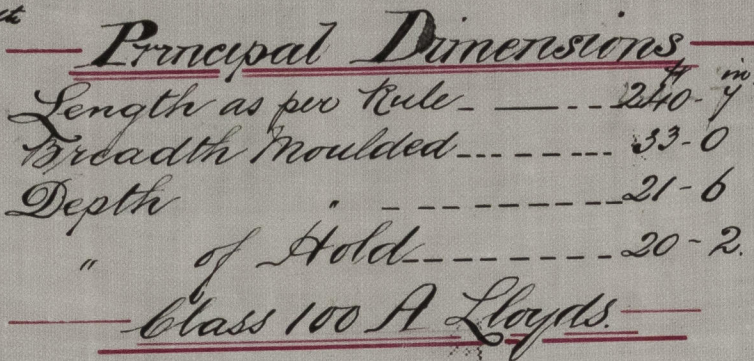 Principal Dimensions
ft in
Length as per Rule 240-7
Breadth Moulded 33-0
Depth " 21-6
" of Hold 20-2.
Class 100 A Lloyds.